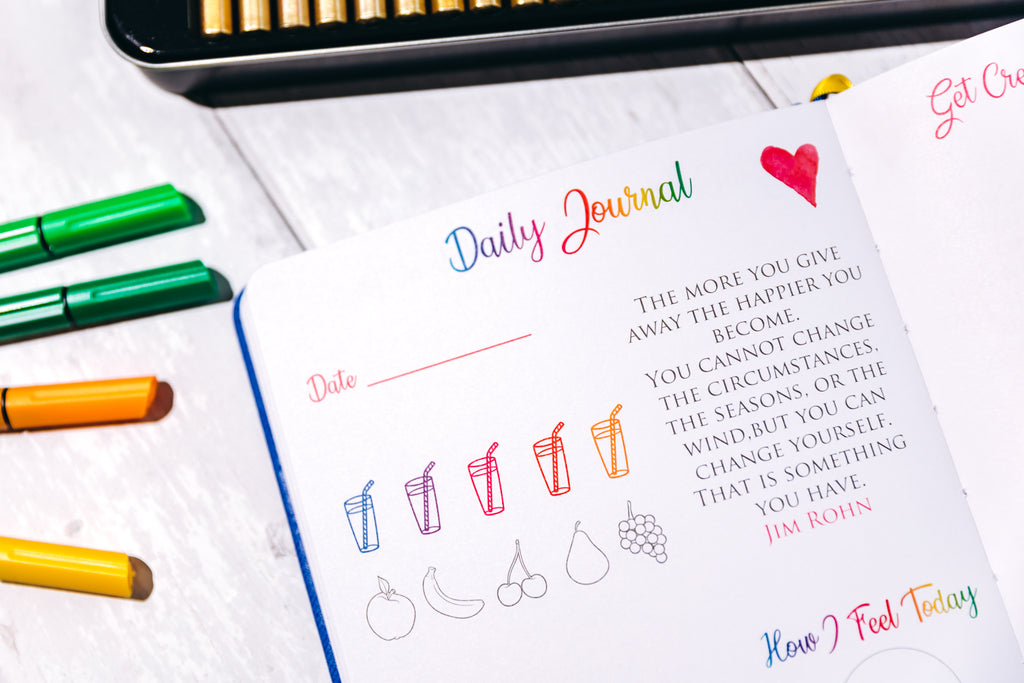 Daily Journal
Date
THE MORE YOU GIVE
AWAY THE HAPPIER YOU
BECOME.
YOU CANNOT CHANGE
THE CIRCUMSTANCES,
THE SEASONS, OR THE
WIND,BUT YOU CAN
CHANGE YOURSELF.
THAT IS SOMETHING
YOU HAVE.
JIM ROHN
How I Feel Today
Get